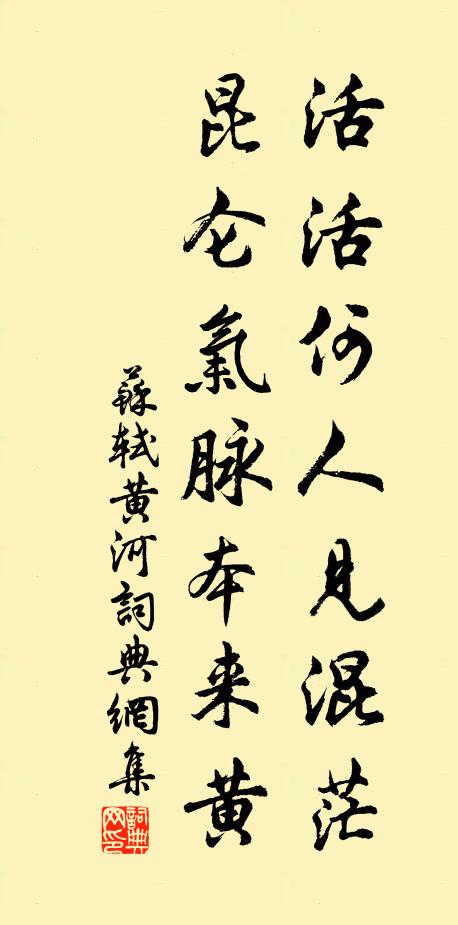 活活何人見混茫
昆仑氣脉本来黄
蘇軾黄河詞典網集
詞典网印